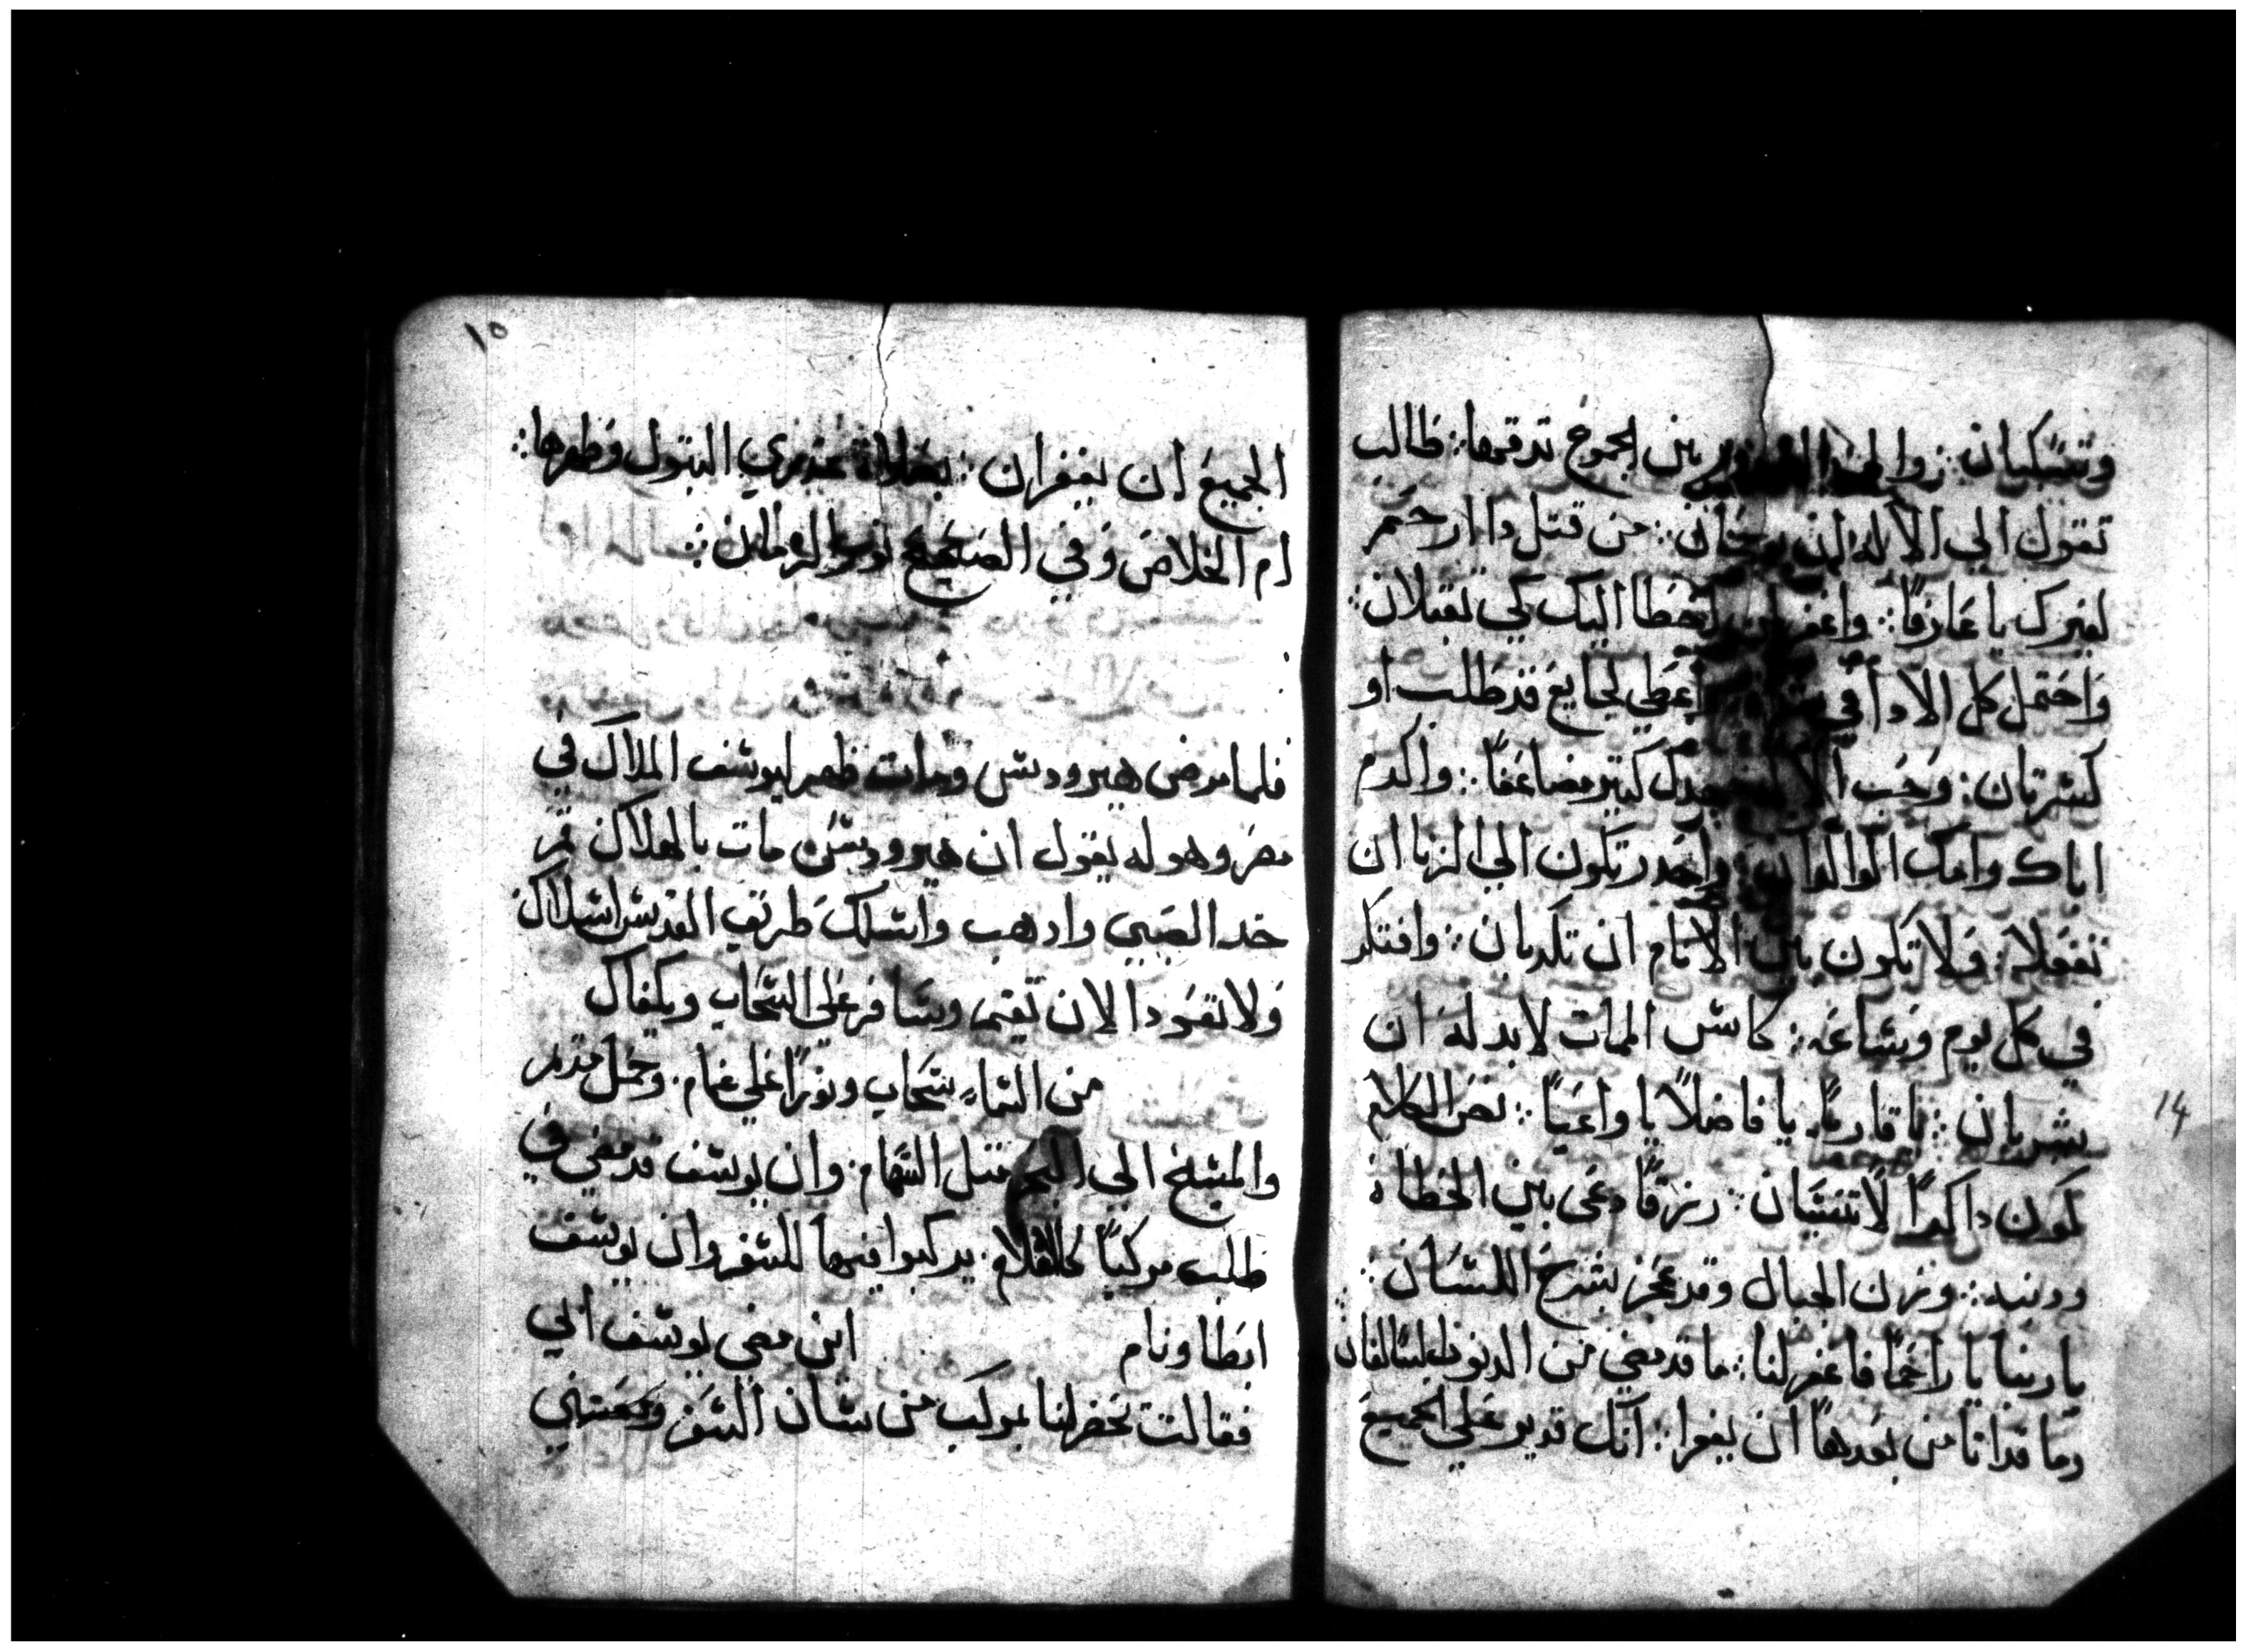 وتتشكيان : زوا بين الجموع تدقمها : طالب
تقول الي الاله ان : من قتل داا ارحم
لغيرك يا عارفًا : واغفر اخطا اليك كي تقبلان :
واحتمل كل الادا في اعطي لجايع قد طلب او
كسرتان : وحب كتير مضاعفًا : واكرم
اباك وامك الوالدان : واحدر تكون الي الزنا ان
تفعلا : ولا تكون بين الانام ان تكدبان : وافتكر
في كل يوم وساعه : كاس الممات لا بد له ان
يشربان : يا قاريًا يا فاضلًا يا واعيًا : نص الكلام
كون داكرًا لا تنسان : رزقًا دعى بين الخطاه
ودنبه : وزن الجبال وقد عجز بشرح اللسان :
يا ربنا يا راحمًا فاغفر لنا : ما قد مضي من الدنوب السالفان
وما قد اتا من بعدها ان يغفرا : انك قدير علي الجميع
14
١٥
الجميع ان يغفران : بصلاة عذري البتول وطهرها :
ام الخلاص وفي الصحيح
فلما مرض هيرودس ومات ظهر ليوسف الملاك في
مصر وهو له يقول ان هيرودس مات بالهلاك تم
خد الصبي وادهب واسلك طريق القدس اسلاك
ولا تقود الان تقيم وسافر علي السحاب ويكفاك
من السماء سحاب ونورًا علي غمام . وحمل مريم
والمسيح الي البحر متل السهام . وان يوسف قد مضي في
طلب مركبًا كالقلاع . يركبوا فيها للسفر وان يوسف
ابطا ونام اين مضي يوسف ابي
فقالت تحضر لنا مركب من شان السفر